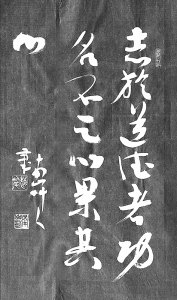 志於道德者功
名不足以累其
心